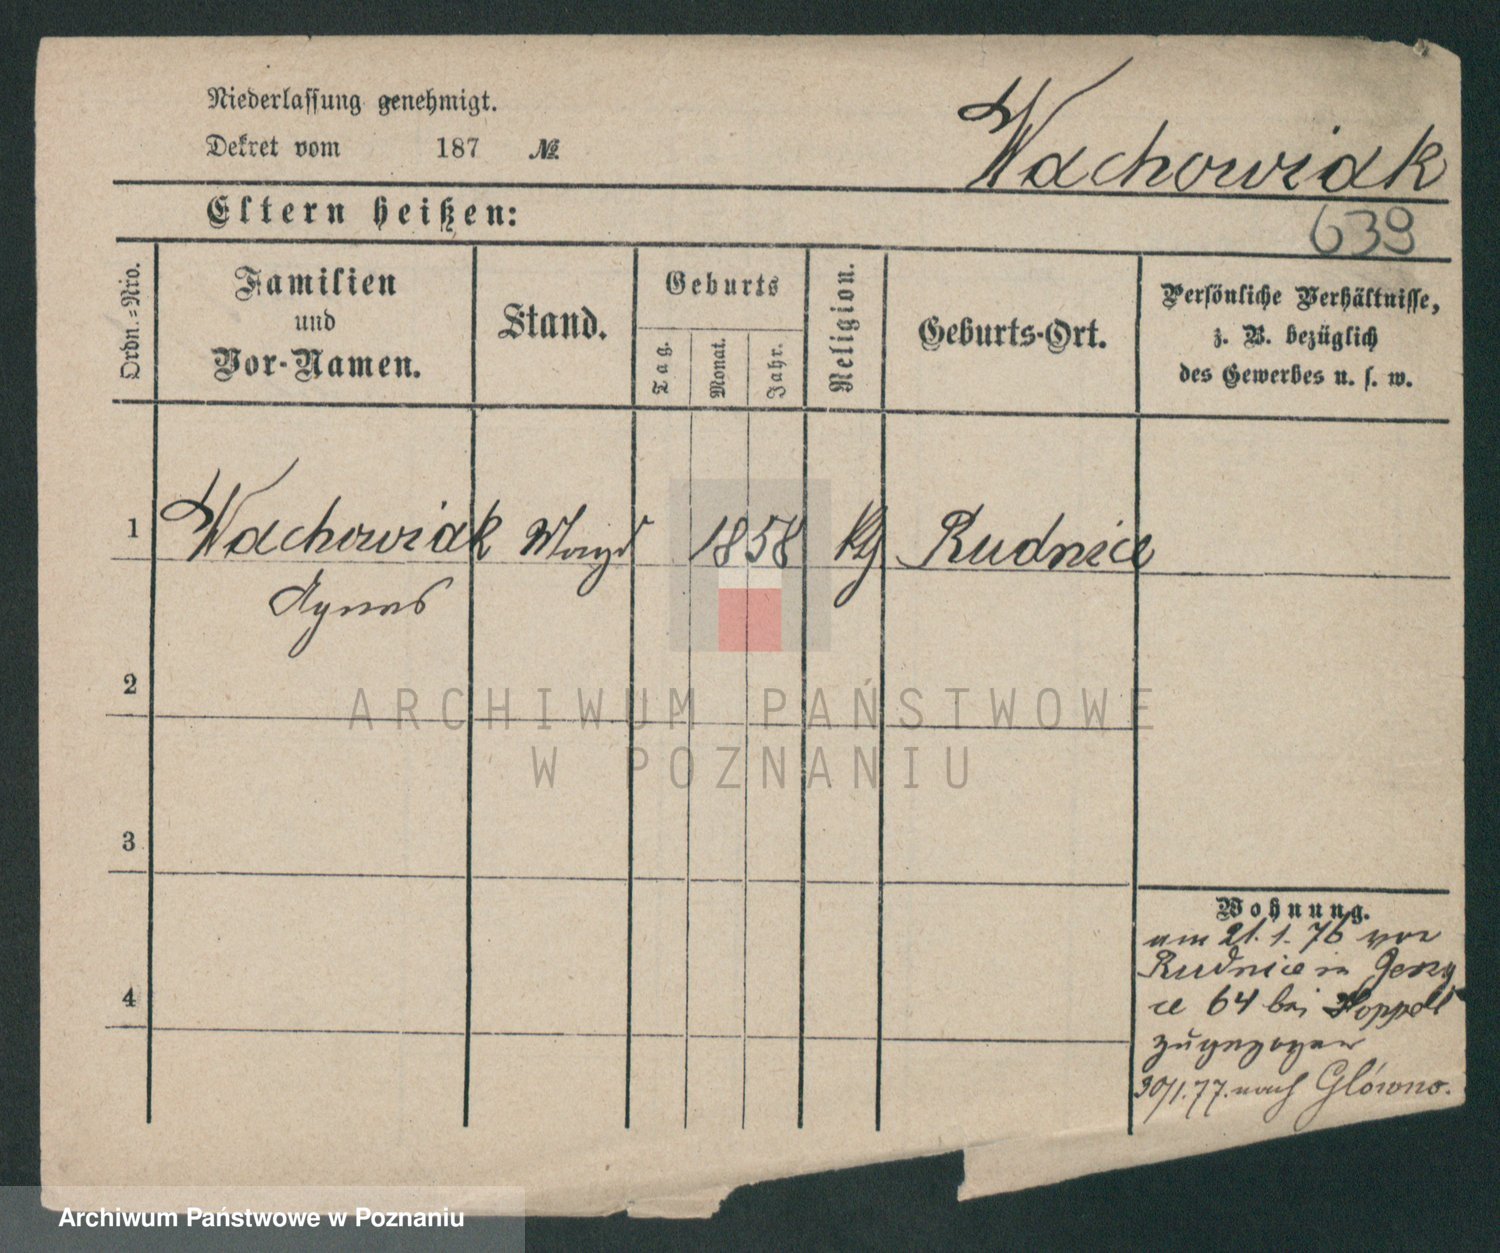 Niederlassung genehmigt.
Dekret vom 187 №
Wachowiak
Eltern heißen:
639
Ordn.-Nro.
Familien
und
Vor-Namen.
Stand.
Geburts
Tag.
Monat.
Jahr.
Religion.
Geburts-Ort.
Persönliche Verhältnisse,
z. B. bezüglich
des Gewerbes u. s. w.
1 Wachowiak Magd 1858 kth Rudnice
Agnes
2
3
4
Wohnung.
am 21.1.76 von
Rudnice in
64 bei
zugezogen
30/1.77. nach Główno.
ARCHIWUM PAŃSTWOWE
W POZNANIU
Archiwum Państwowe w Poznaniu